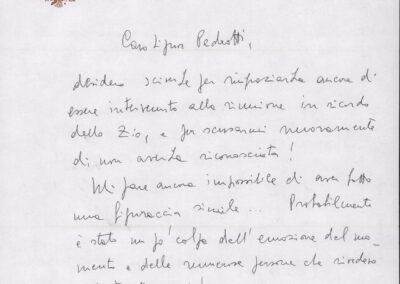 Caro Signor Pedrotti,
desidero scriverLe per ringraziarLa ancora di
essere intervenuto alla riunione in ricordo
dello Zio, e per scusarmi nuovamente
di non averLa riconosciuta!
Mi pare ancora impossibile di aver fatto
una figuraccia simile... Probabilmente
è stata un po' colpa dell'emozione del mo-
mento e delle numerose persone che rivedevo